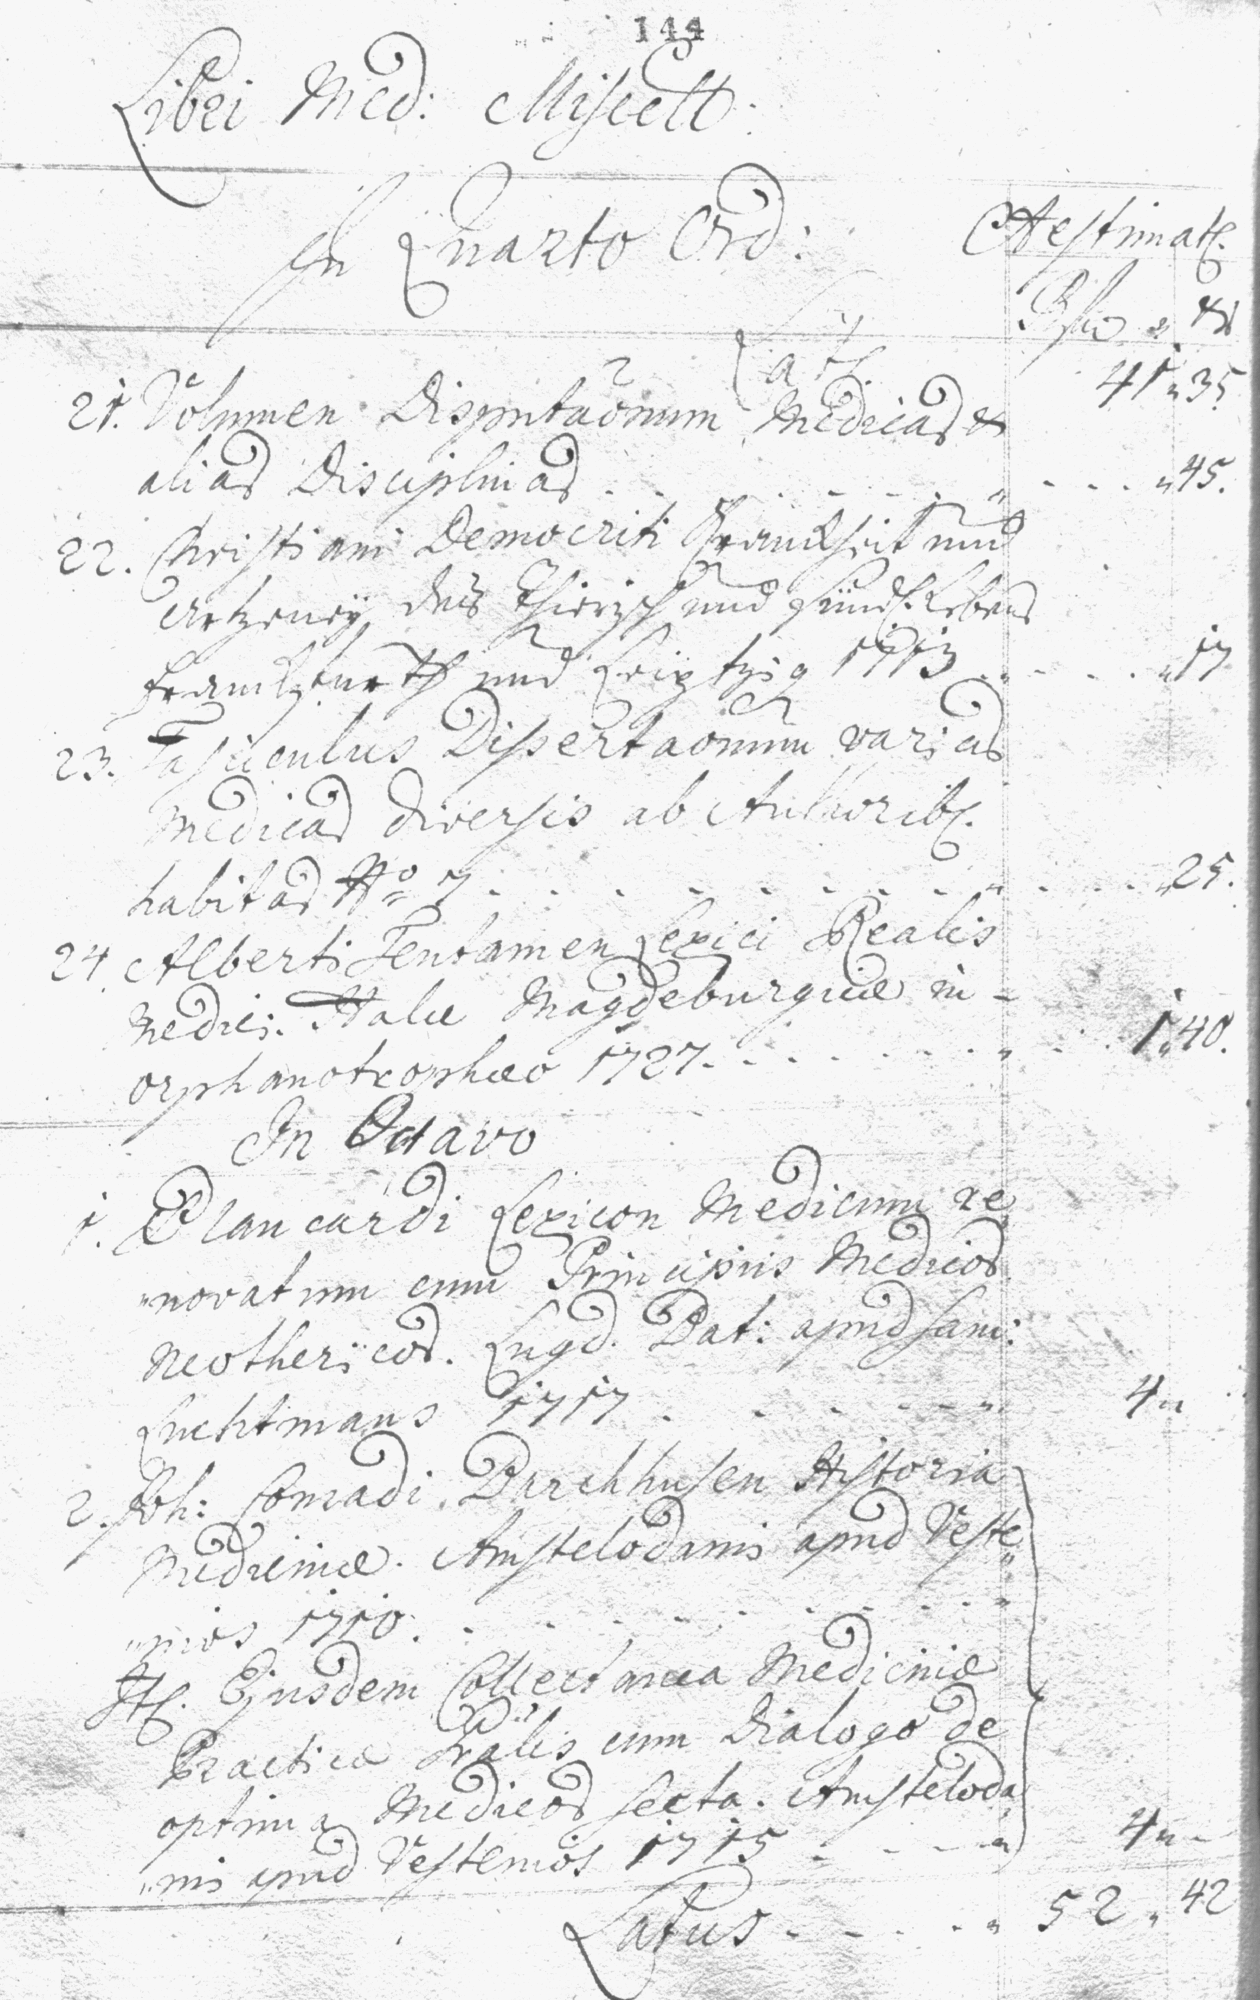 144
Libri Med: Miscell:
In Quarto Ord:
Aestimat.
Rfl. xr
Lat.
41 " 35.
21. Volumen Disputaõnum Medicar &
aliar Disciplinar - - - - - " 45.
22. Christiani Democriti Kranckheit und
Artzeney des Thierisch und sündl. Lebens
Franckfurth und Leiptzig 1713 - - - " 17
23. Fasciculus Dissertaõnum variar
Medicar diversis ab Authorib.
habitar No 7 - - - - - " 25.
24. Alberti Tentamen Lexici Realis
Medici. Halae Magdeburgicae in -
orphanotrophaeo 1727. - - - - 1 " 40.
In Octavo
1. Blancardi Lexicon Medicum re
"novatum cum Principiis Medicor
Neothericor. Lugd. Bat: apud Sam:
Luchtmans 1717 - - - - 4 "
2. Joh: Conradi Barchhusen Historia
Medicinae. Amstelodami apud Veste
"nios 1710. - - - - -
It. Ejusdem Collectanea Medicinae
Practicae Grâlis cum Dialogo de
optima Medicor secta. Amsteloda
"mi apud Vestenios 1715 - - - 4 " -
Latus - - - - 52 " 42